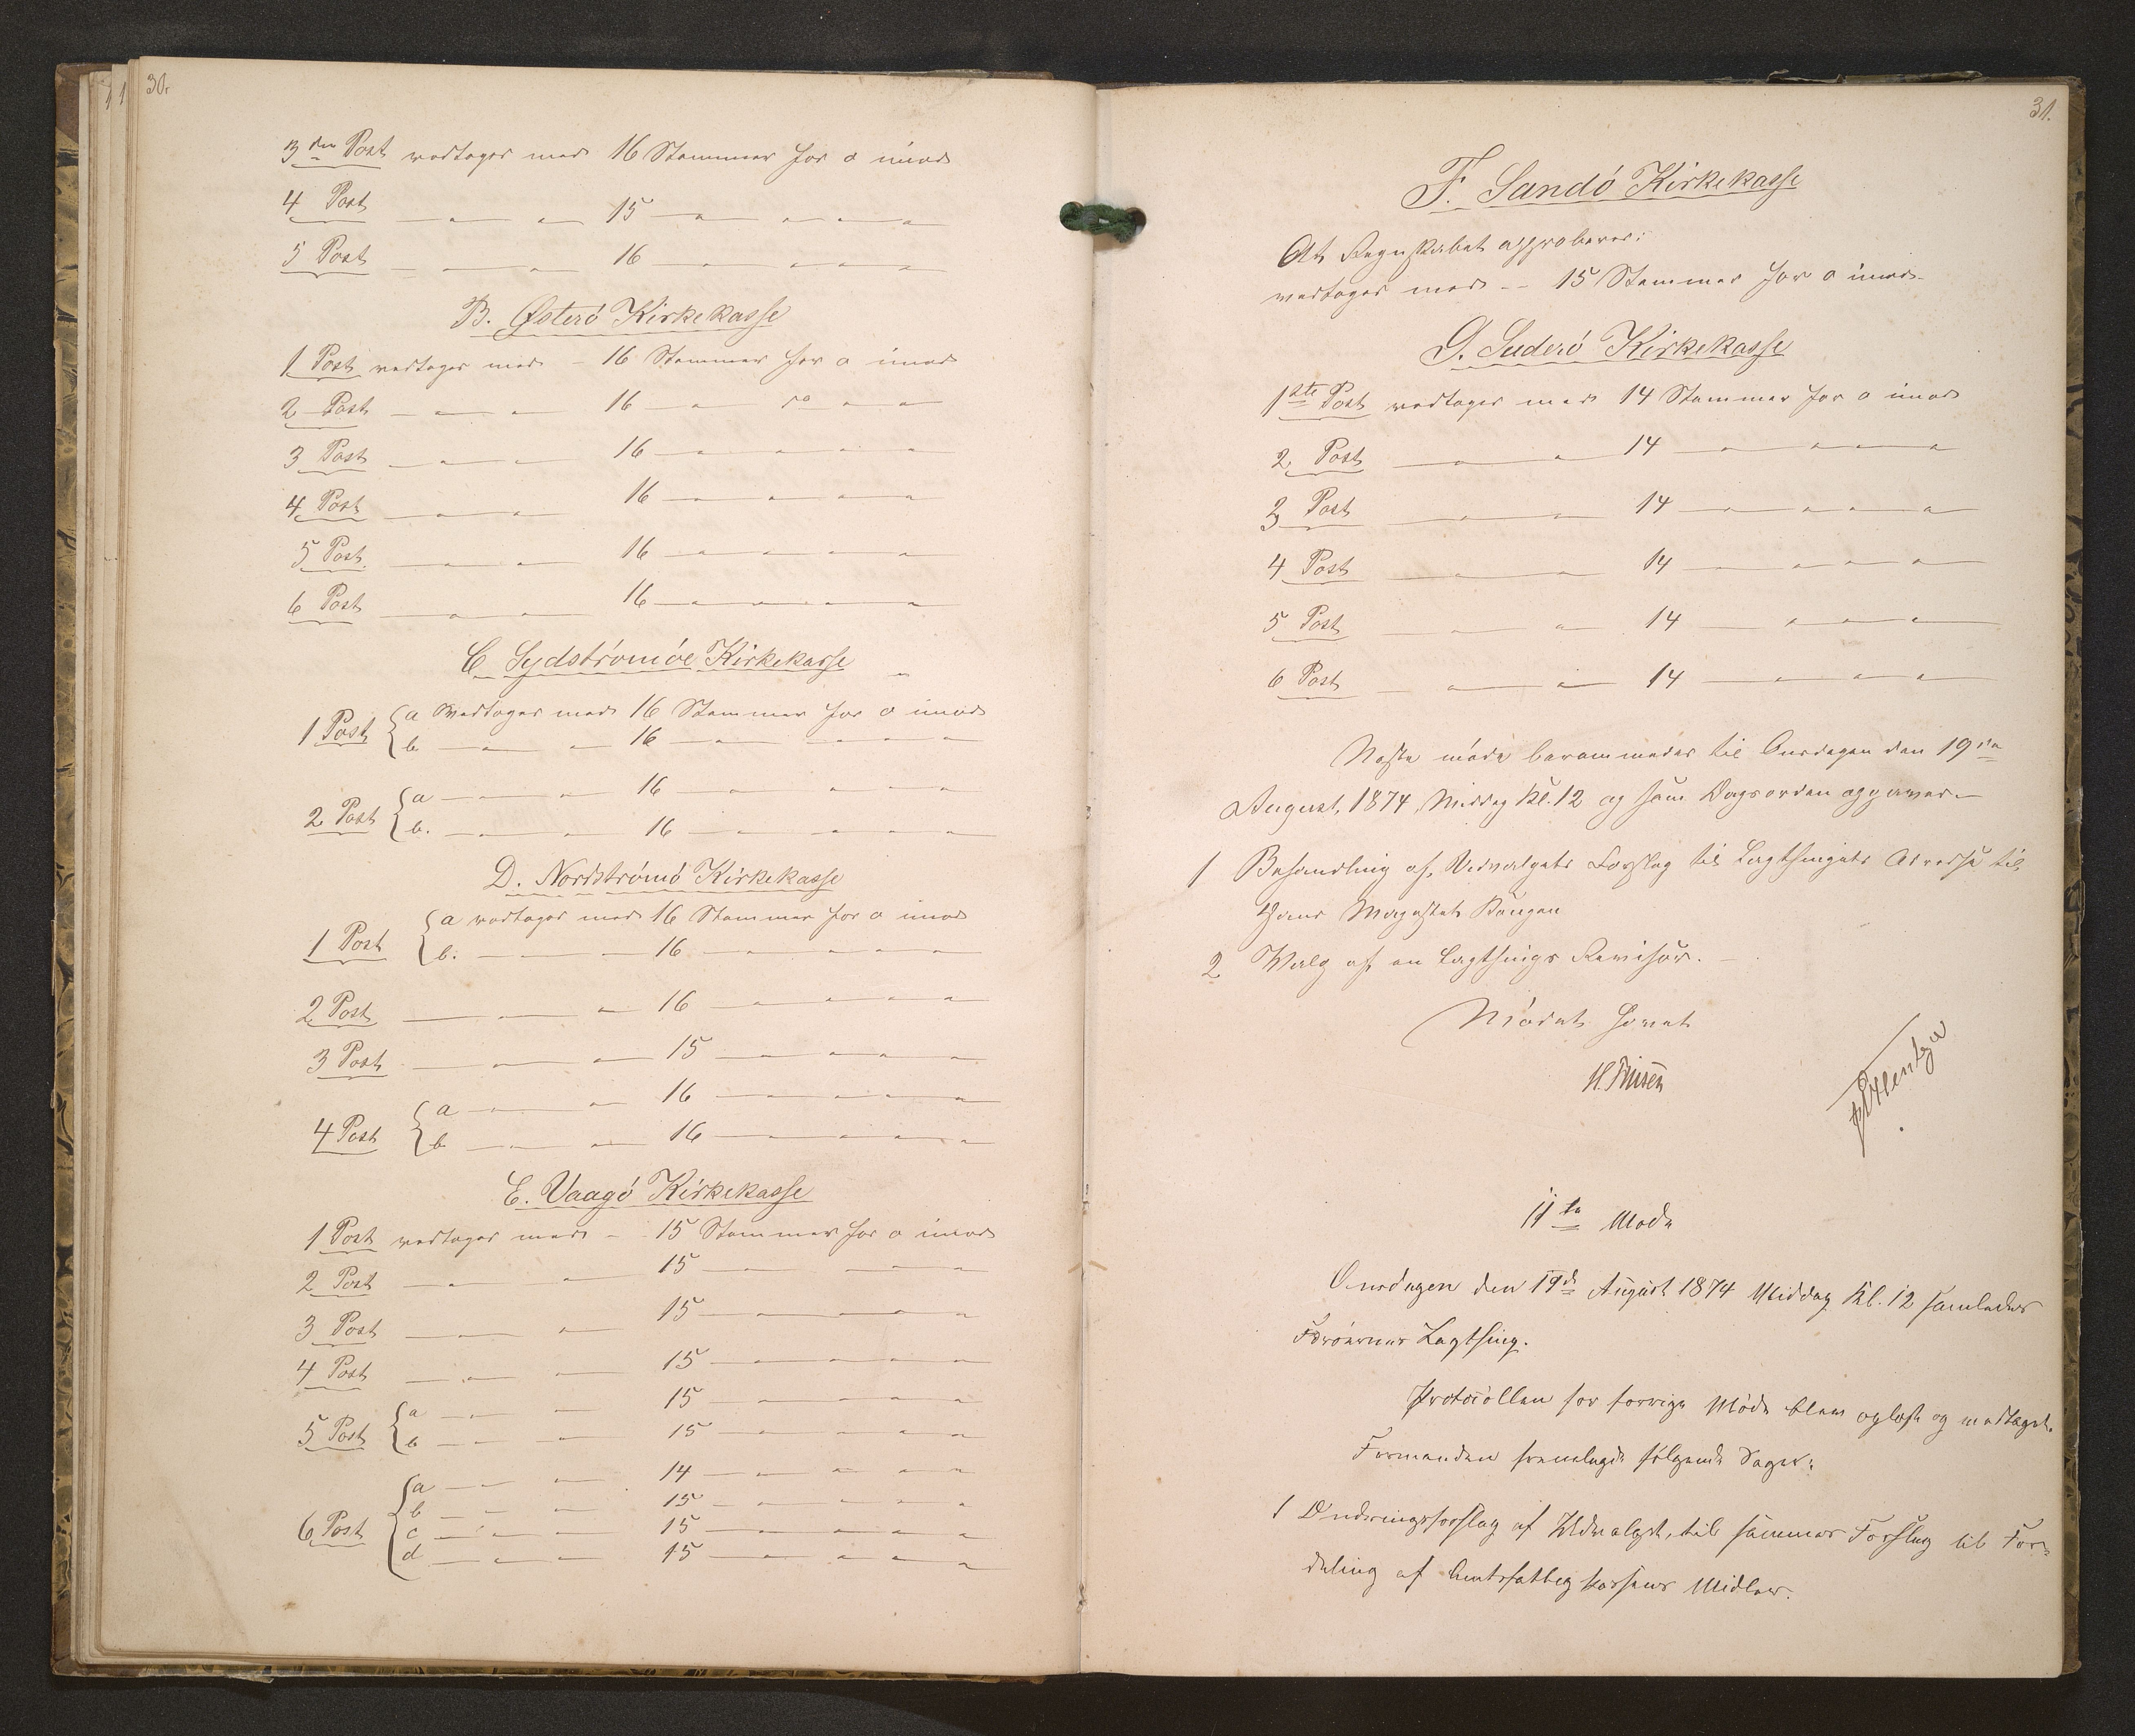 30.
3den Post vedtages med 16 Stemmer for o imod
4 Post — " — " — 15 — " — " — " — " —
5 Post — " — " — 16 — " — " — " — " —
B. Østerö Kirkekasse
1 Post vedtages med - 16 Stemmer for o imod
2 Post — " — " — 16 — " — " — " — " —
3 Post — " — " — 16 — " — " — " — " —
4 Post — " — " — 16 — " — " — " — " —
5 Post. — " — " — 16 — " — " — " — " —
6 Post — " — " — 16 — " — " — " — " —
C Sydströmöe Kirkekasse
1 Post { a Vedtages med 16 Stemmer for o imod
b — " — " — 16 — " — " — " — " —
2 Post { a — " — " — 16 — " — " — " — " —
b. — " — " — 16 — " — " — " — " —
D. Nordströmö Kirkekasse
1 Post { a vedtages med 16 Stemmer for o imod
b. — " — " — 16 — " — " — " — " —
2 Post — " — " — 16 — " — " — " — " —
3 Post — " — " — 15 — " — " — " — " —
4 Post { a — " — " — 16 — " — " — " — " —
b — " — " — 16 — " — " — " — " —
E. Vaagö Kirkekasse
1 Post vedtages med - 15 Stemmer for o imod
2 Post — " — " — 15 — " — " — " —
3 Post — " — " — 15 — " — " — " — " —
4 Post — " — " — 15 — " — " — " — " —
5 Post { a — " — " — 15 — " — " — " — " —
b — " — " — 15 — " — " — " — " —
6 Post { a — " — " — 14 — " — " — " — " —
b — " — " — 15 — " — " — " — " —
c — " — " — 15 — " — " — " — " —
d — " — " — 15 — " — " — " — " —
31.
F. Sandö Kirkekasse
At Regnskabet approberes:
vedtages med -- 15 Stemmer for o imod-
G. Suderö Kirkekasse
1ste Post vedtages med 14 Stemmer for o imod
2 Post — " — " — 14 — " — " — " — " —
3 Post — " — " — 14 — " — " — " — " —
4 Post — " — " — 14 — " — " — " — " —
5 Post — " — " — 14 — " — " — " —
6 Post — " — " — 14 — " — " — " —
Næste möde berammedes til Onsdagen den 19de
August, 1874, Middag Kl. 12 og som Dagsorden opgaves -
1 Behandling af Udvalgets Forslag til Lagthingets Adresse til
Hans Majestæt Kongen
2 Valg af en Lagthings Revisor. -
Mödet hævet
H. Finsen
11te Mode
Onsdagen den 19de August 1874 Middag Kl. 12 samledes
Færöernes Lagthing.
Protocollen for forrige Möde blev oplæst og vedtaget.
Formanden fremlagde følgende Sager:
1 Ændringsforslag af Udvalget, til sammes Forslag til For=
deling af Amtsfattigkassens Midler.